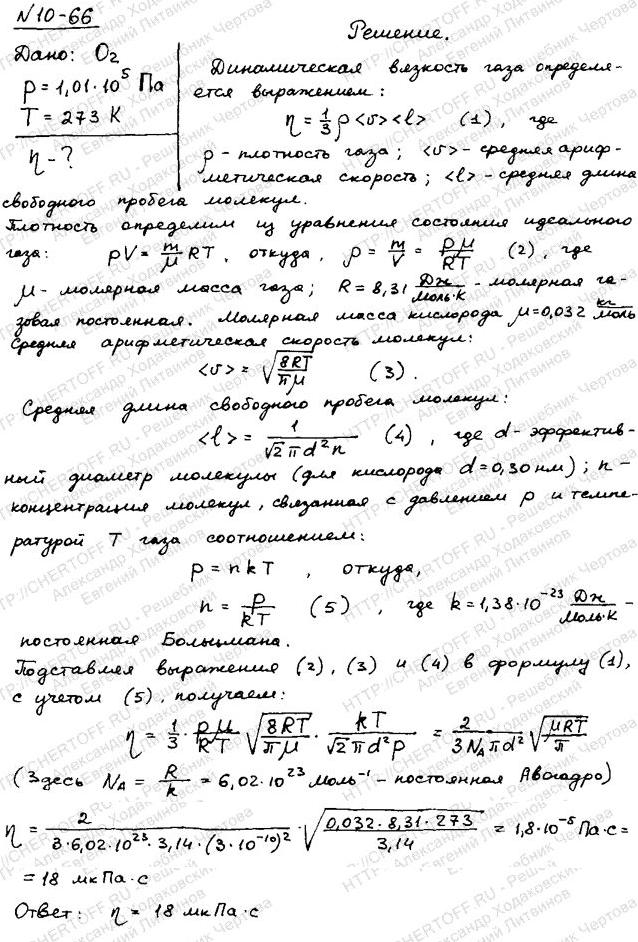 №10-66
Дано: O₂
p = 1,01·10⁵ Па
T = 273 К
η - ?
Решение.
Динамическая вязкость газа определя-
ется выражением:
η = 1/3 ρ <v><l> (1), где
ρ - плотность газа; <v> - средняя ариф-
метическая скорость; <l> - средняя длина
свободного пробега молекул.
Плотность определим из уравнения состояния идеального
газа: pV = m/μ RT, откуда, ρ = m/V = pμ/RT (2), где
μ - молярная масса газа; R = 8,31 Дж/моль·К - молярная га-
зовая постоянная. Молярная масса кислорода μ = 0,032 кг/моль
Средняя арифметическая скорость молекул:
<v> = √(8RT/πμ) (3).
Средняя длина свободного пробега молекул:
<l> = 1/(√2 π d² n) (4), где d - эффектив-
ный диаметр молекулы (для кислорода d = 0,30 нм); n -
концентрация молекул, связанная с давлением p и темпе-
ратурой T газа соотношением:
p = nkT, откуда,
n = p/kT (5), где k = 1,38·10⁻²³ Дж/моль·К -
постоянная Больцмана.
Подставляя выражения (2), (3) и (4) в формулу (1),
с учетом (5), получаем:
η = 1/3 · pμ/RT √(8RT/πμ) · kT/(√2 π d² p) = 2/(3N_A π d²) √(μRT/π)
(Здесь N_A = R/k = 6,02·10²³ моль⁻¹ - постоянная Авогадро)
η = 2/(3·6,02·10²³·3,14·(3·10⁻¹⁰)²) · √(0,032·8,31·273/3,14) = 1,8·10⁻⁵ Па·с =
= 18 мкПа·с
Ответ: η = 18 мкПа·с
HTTP://CHERTOFF.RU - Решебник Чертова
Александр Ходаковский
Евгений Литвинов